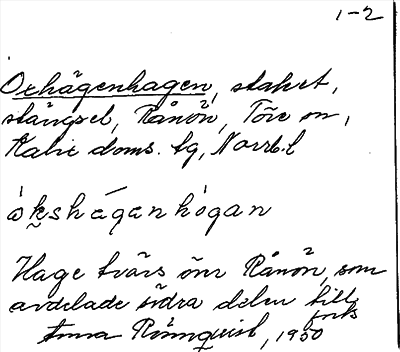 1-2
Oxhägenhagen, staket,
stängsel, Rånön, Töre sn,
Kalix doms. tg, Norrb. l
Hage tvärs över Rånön, som
avdelade södra delen till
Anna Rönnqvist, 1950